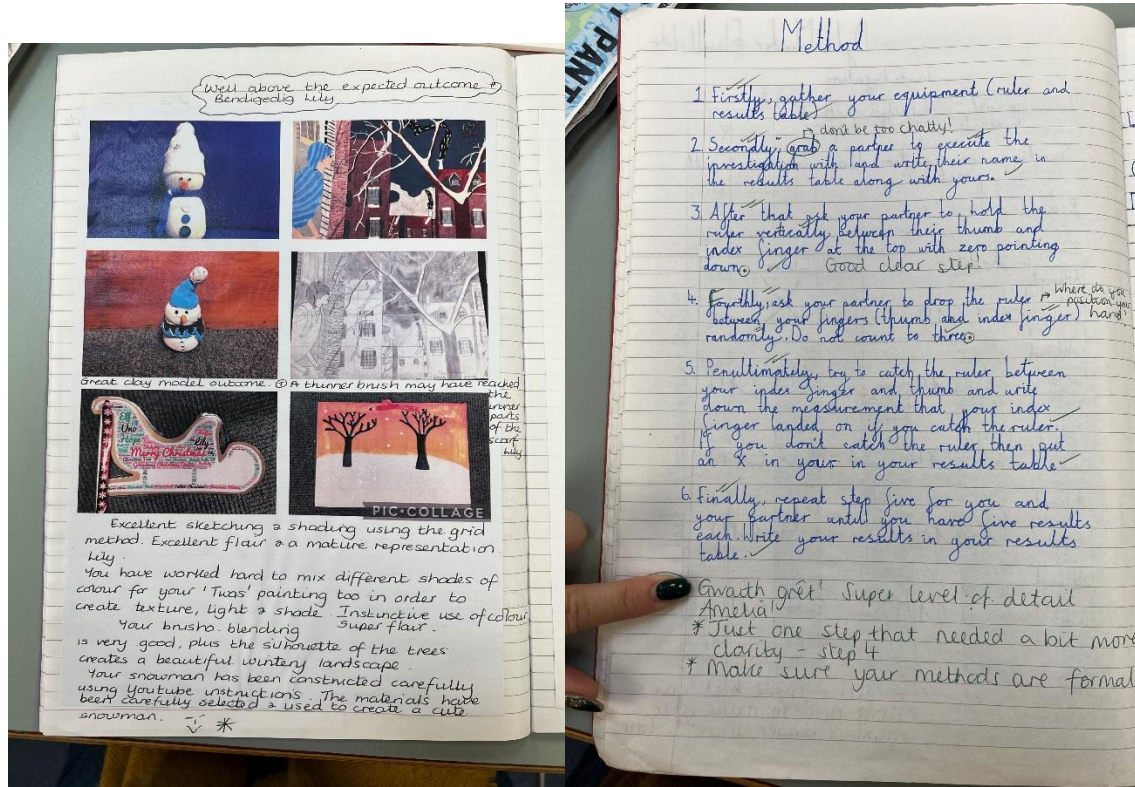 Well above the expected outcome
Bendigedig Lily
Great clay model outcome. A thinner brush may have reached
the
inner
parts
of the
scarf
Lily
Elf
Uno
Hope
Lily
Merry Christmas
PIC•COLLAGE
Excellent sketching & shading using the grid
method. Excellent flair & a mature representation
Lily.
You have worked hard to mix different shades of
colour for your 'Twas' painting too in order to
create texture, light & shade. Instinctive use of colour
Super flair.
Your brusho blending
is very good, plus the silhouette of the trees
creates a beautiful wintery landscape.
Your snowman has been constructed carefully
using Youtube instructions. The materials have
been carefully selected & used to create a cute
snowman.
PANT
Method
1. Firstly, gather your equipment (ruler and
results table)
don't be too chatty!
2. Secondly, grab a partner to execute the
investigation with and write their name in
the results table along with yours.
3. After that ask your partner to hold the
ruler vertically between their thumb and
index finger at the top with zero pointing
down. Good clear step!
4. Fourthly, ask your partner to drop the ruler
where do you
position your
hand?
between your fingers (thumb and index finger)
randomly. Do not count to three.
5. Penultimately, try to catch the ruler between
your index finger and thumb and write
down the measurement that your index
finger landed on if you catch the ruler.
If you don't catch the ruler then put
an X in your in your results table
6. Finally, repeat step five for you and
your partner until you have five results
each. Write your results in your results
table.
Gwaith grêt! Super level of detail
Amelia
* Just one step that needed a bit more
clarity - step 4
* Make sure your methods are formal